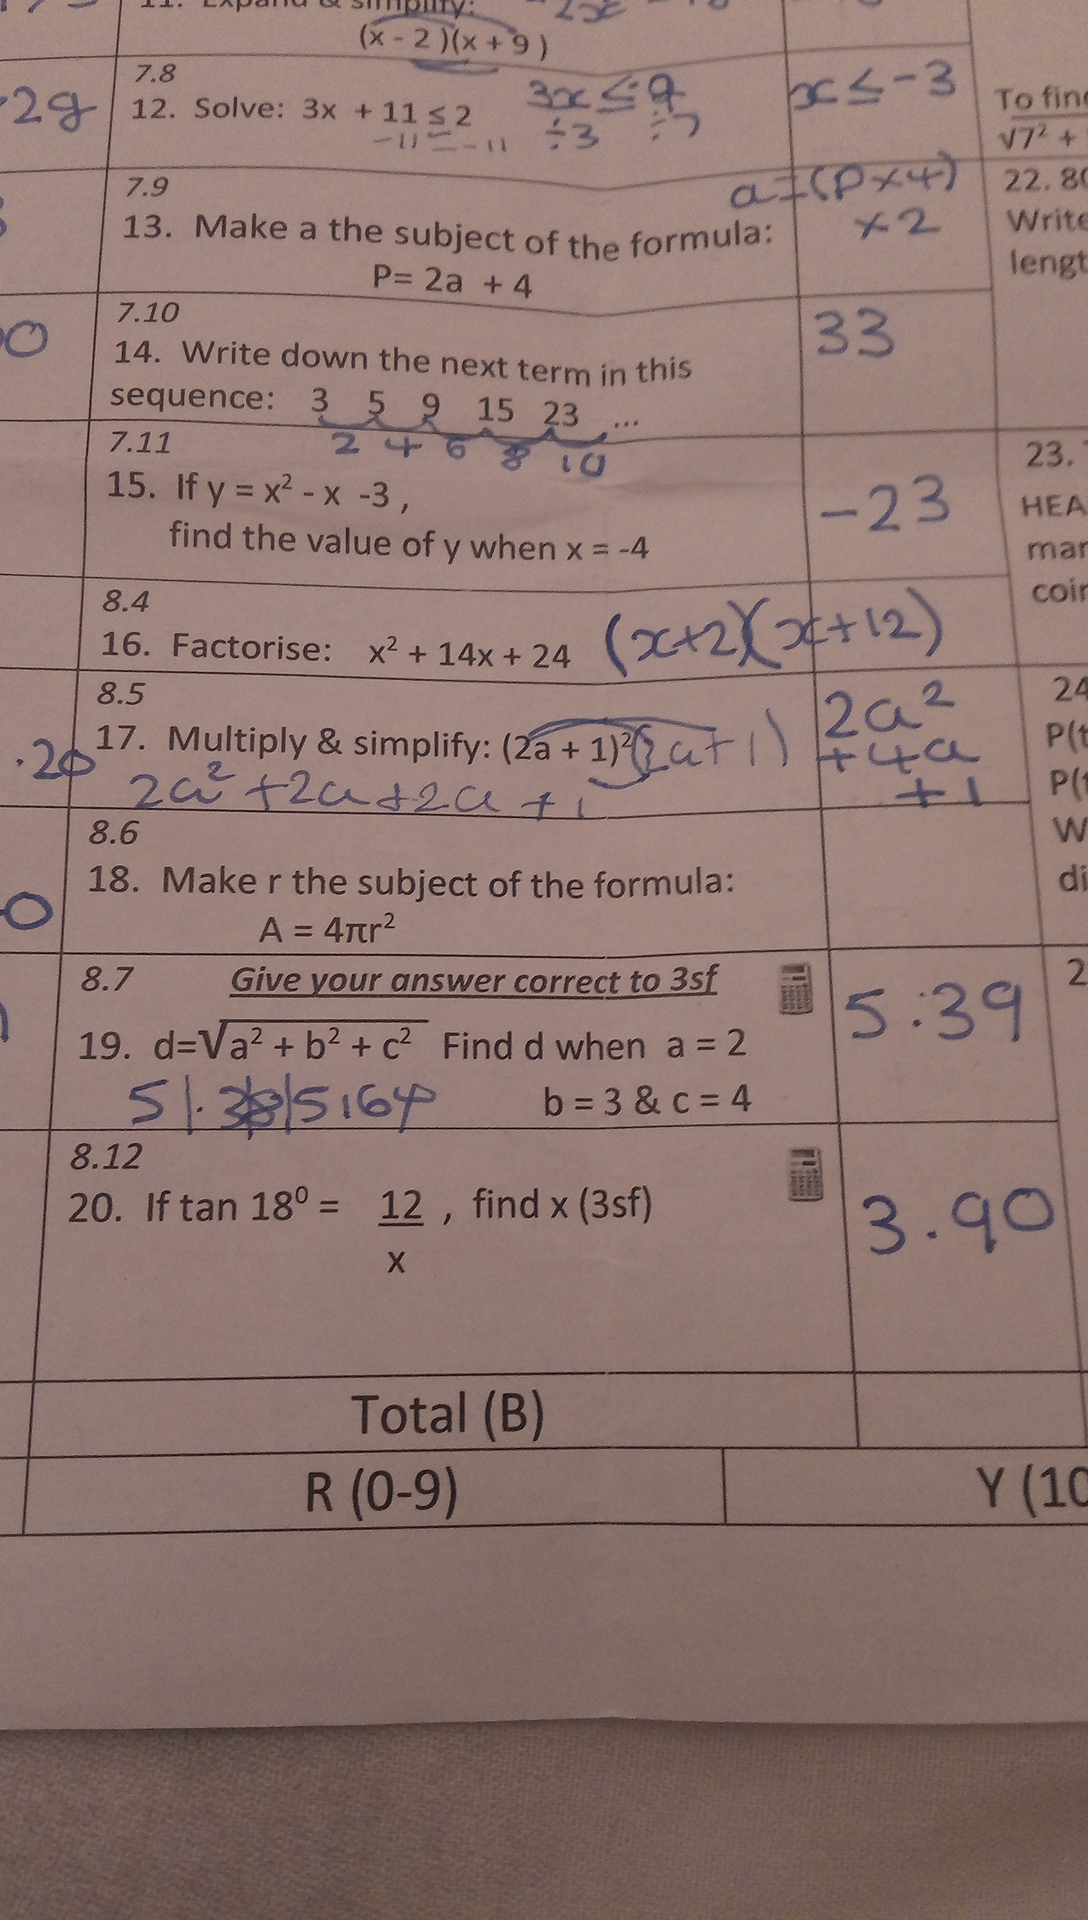 11. Expand & simplify:
(x - 2 )(x + 9 )
-2g
7.8
12. Solve: 3x + 11 ≤ 2
3x ≤ 9
x ≤ -3
-11 = -11
÷3
To find
√7² +
7.9
13. Make a the subject of the formula:
P= 2a + 4
a=(P×4)
×2
22. 80
Write
lengt
7.10
14. Write down the next term in this
sequence: 3 5 9 15 23 ...
2 4 6 8 10
33
7.11
15. If y = x² - x -3 ,
find the value of y when x = -4
-23
23.
HEA
mar
coin
8.4
16. Factorise: x² + 14x + 24 (x+2)(x+12)
8.5
17. Multiply & simplify: (2a + 1)² (2a+1)
2a²+2a+2a+1
2a²
+4a
+1
.20
24
P(t
P(t
W
di
8.6
18. Make r the subject of the formula:
A = 4πr²
8.7 Give your answer correct to 3sf
19. d=√a² + b² + c² Find d when a = 2
b = 3 & c = 4
5.39
2
8.12
20. If tan 18⁰ = 12 , find x (3sf)
x
3.90
Total (B)
R (0-9)
Y (10